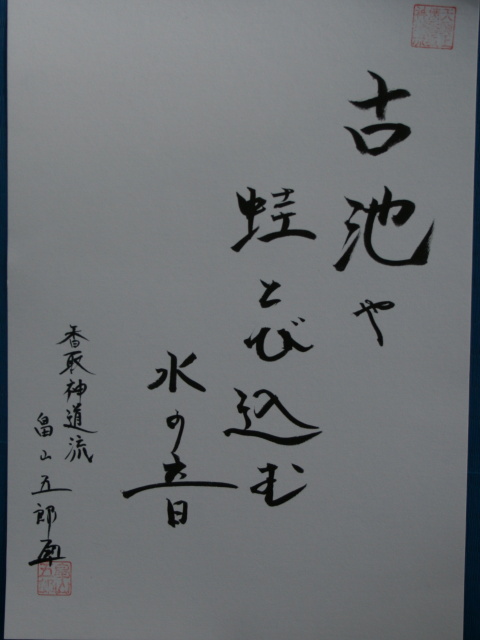 古池や
蛙とび込む
水の音
香取神道流
畠山五郎